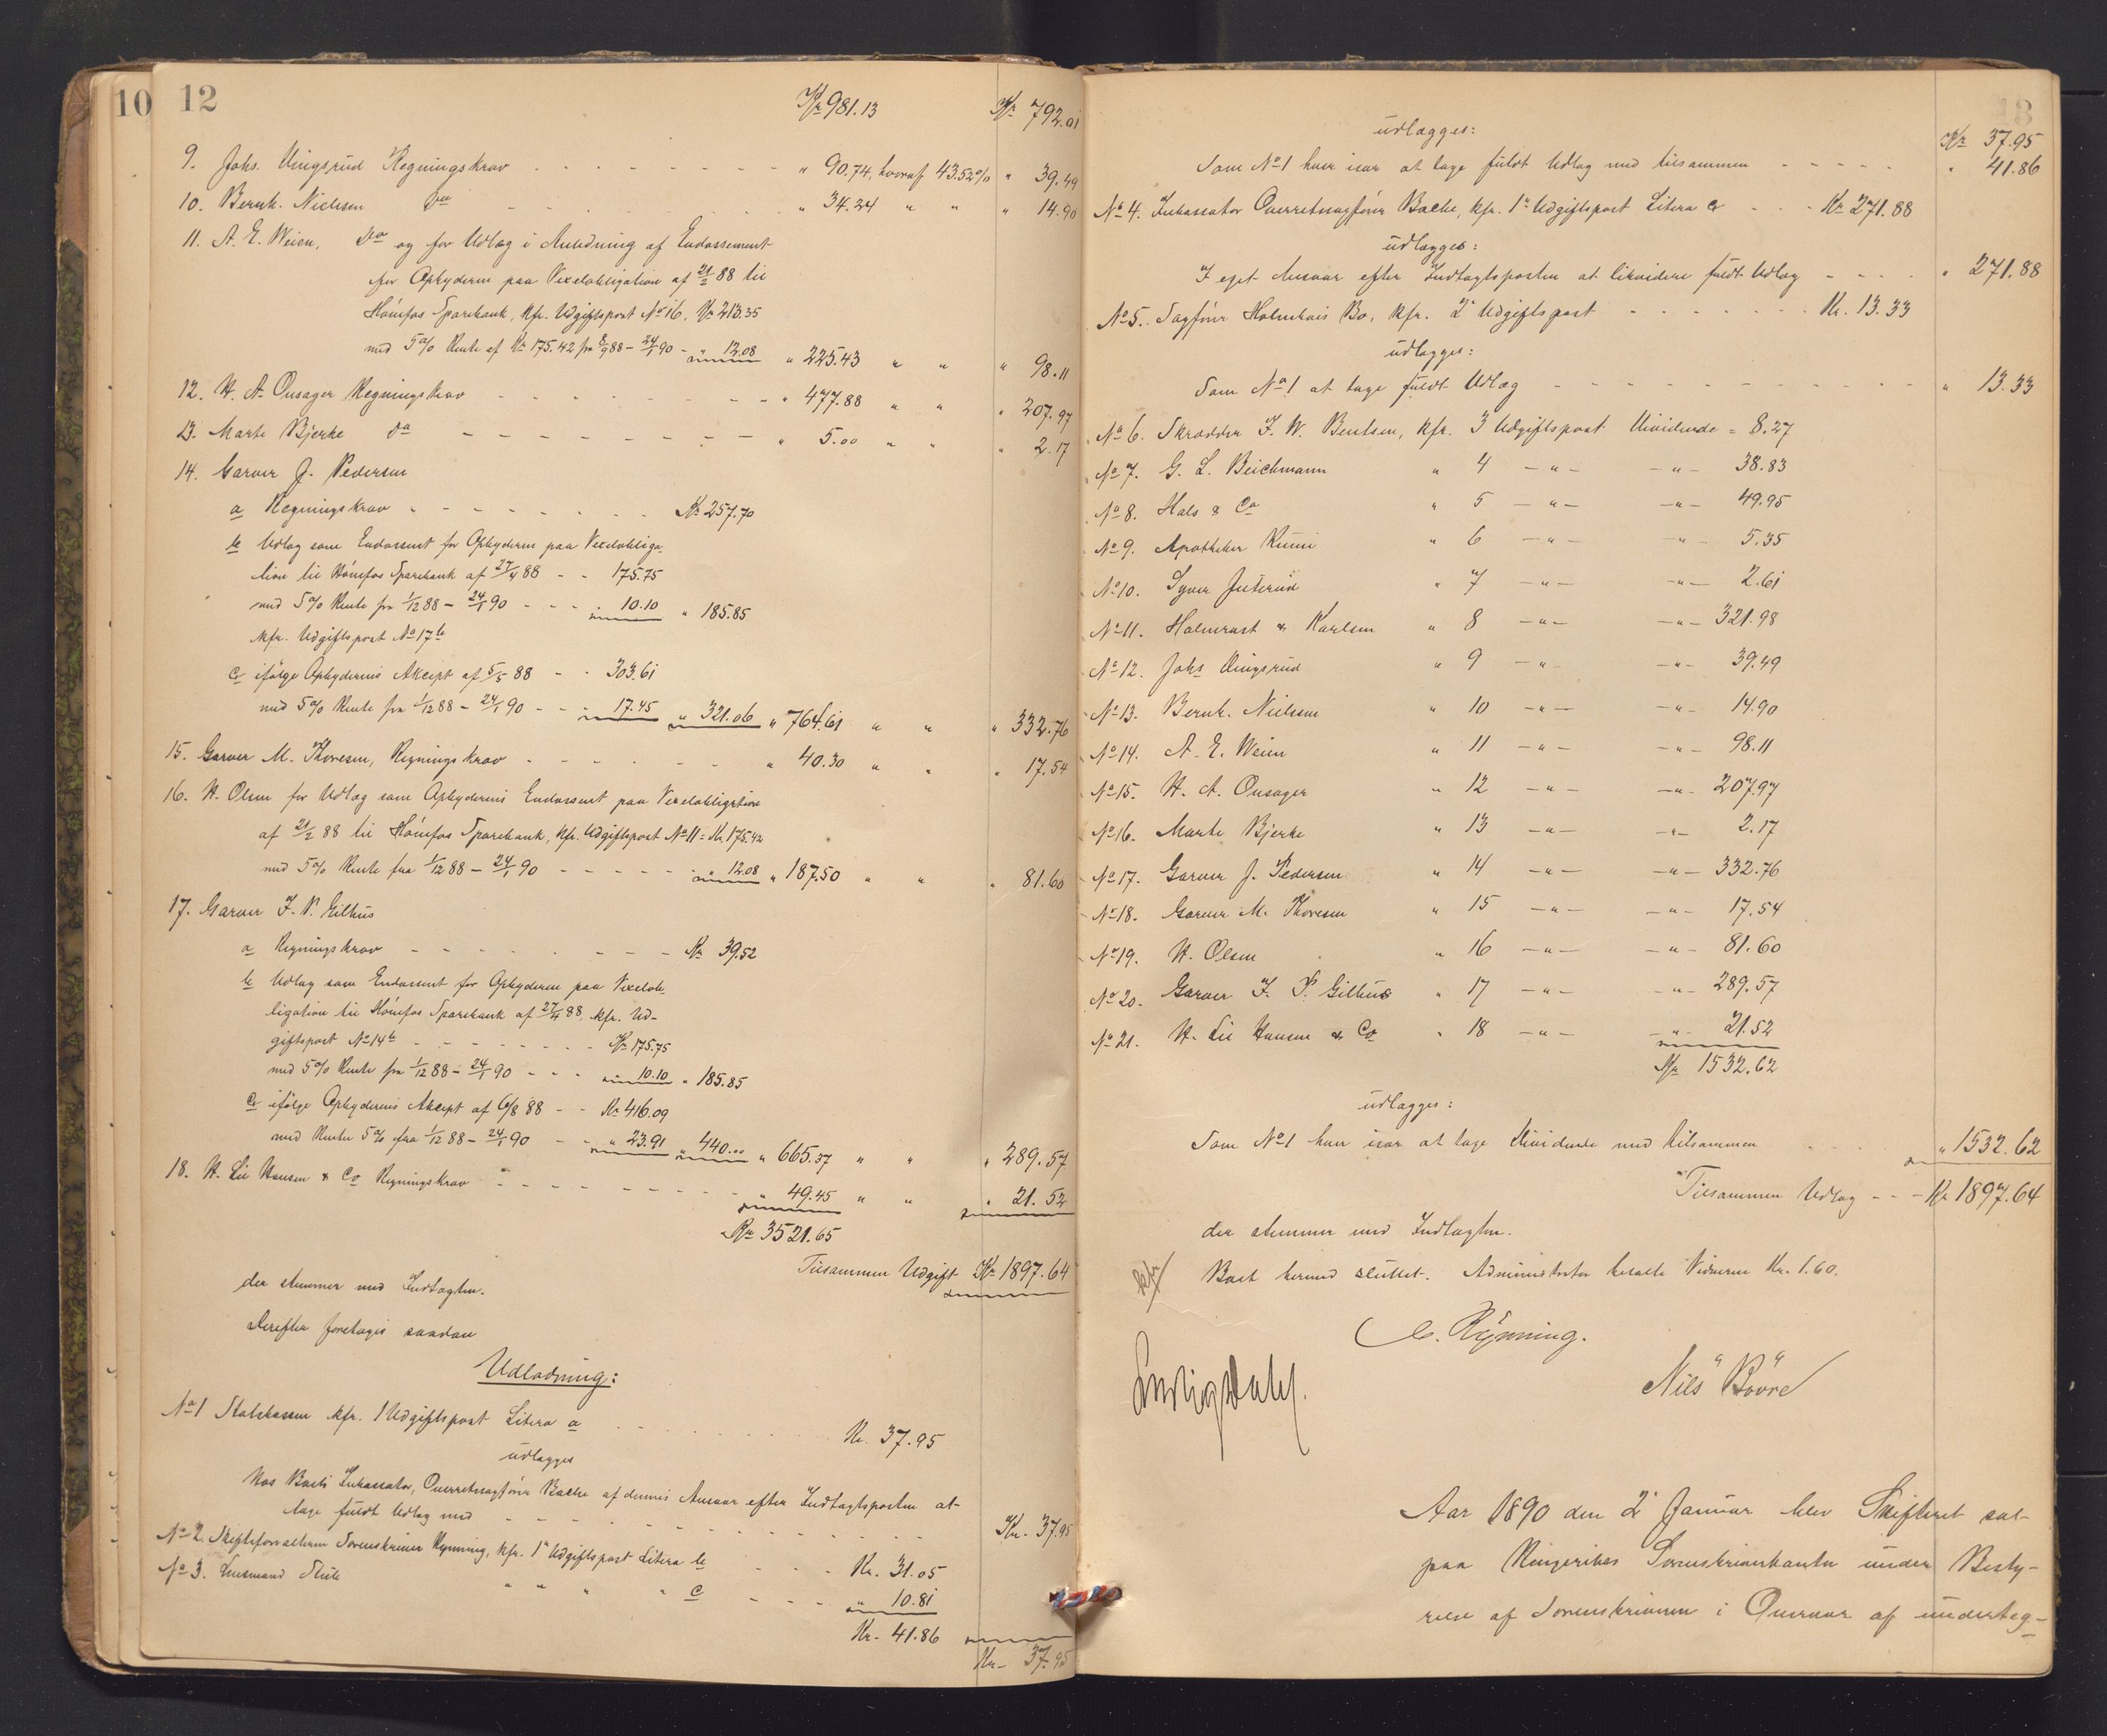 10 12
Kr 981.13 Kr 792.01
9. Johs. Vingsrud Regningskrav - - - " 90.74, hvoraf 43.52% " 39.49
10. Bernh. Nielsen Do - - - " 34.24 " " " 14.90
11. A. E. Weien, Do og for Udlæg i Anledning af Endossement
for Opbyderen paa Vexelobligation af 21/2 88 til
Hönefos Sparebank, kfr. Udgiftspost No 16, Kr 213.35
med 5% Rente af Kr 175.42 fra 8/9 88 - 24/1 90 - " 12.08 " 225.43 " " " 98.11
12. H. A. Onsager Regningskrav - - - " 477.88 " " " 207.97
13. Marte Bjerke do - - - " 5.00 " " " 2.17
14. Garver J. Pedersen
a Regningskrav - - - Kr 257.70
b Udlæg som Endossent for Opbyderen paa Vexelobliga-
tion til Hönefos Sparebank af 27/4 88 - - 175.75
med 5% Rente fra 1/12 88 - 24/1 90 - - - " 10.10 " 185.85
kfr. Udgiftspost No 17 b
c ifølge Opbyderens Akcept af 5/5 88 - - 303.61
med 5% Rente fra 1/12 88 - 24/1 90 - - " 17.45 " 321.06 " 764.61 " " " 332.76
15. Garver M. Thoresen, Regningskrav - - - " 40.30 " " " 17.54
16. H. Olsen for Udlæg som Opbyderens Endossent paa Vexelobligation
af 21/2 88 til Hönefos Sparebank, kfr. Udgiftspost No 11 = Kr. 175.42
med 5% Rente fra 1/12 88 - 24/1 90 - - - " 12.08 " 187.50 " " " 81.60
17. Garver F. P. Gilhus
a Regningskrav - - - Kr 39.52
b Udlæg som Endossent for Opbyderen paa Vexelob-
ligation til Hönefos Sparebank af 27/4 88, kfr. Ud-
giftspost No 14 b - - - Kr 175.75
med 5% Rente fra 1/12 88 - 24/1 90 - - - " 10.10 " 185.85
c ifølge Opbyderens Akcept af 6/8 88 - - Kr 416.09
med Rente 5% fra 1/12 88 - 24/1 90 - - " 23.91 " 440.00 " 665.37 " " " 289.57
18. H. Lie Hansen & Co Regningskrav - - - " 49.45 " " " 21.52
Kr 3521.65
Tilsammen Udgift Kr 1897.64
der stemmer med Indtægten.
Derefter foretages saadan
Udlodning:
No 1 Statskassen kfr. 1 Udgiftspost Litera a - - - Kr. 37.95
udlægges
Hos Boets Inkassator, Overretssagförer Bache af dennes Ansvar efter Indtægtsposten at
tage fuldt Udlæg med - - - Kr. 37.95
No 2. Skifteforvalteren Sorenskriver Rynning, kfr. 1ste Udgiftspost Litera b - - - Kr. 31.05
No 3. Lensmand " " " " c - - - " 10.81
Kr. 41.86
Kr. 37.95
13
udlægges: Kr 37.95
Som No 1 hver især at tage fuldt Udlæg med tilsammen - - - " 41.86
No 4. Inkassator Overretssagförer Bache, kfr. 1ste Udgiftspost Litera c - - - Kr 271.88
udlægges:
I eget Ansvar efter Indtægtsposten at likvidere fuldt Udlæg - - - " 271.88
No 5. Sagförer Holmboes Bo, kfr. 2 Udgiftspost - - - Kr. 13.33
udlægges:
Som No 1 at tage fuldt Udlæg - - - " 13.33
No 6. Skrædder F. W. Bentsen, kfr. 3 Udgiftspost Dividende = 8.27
No 7. G. L. Beichmann " 4 - " - - " - 38.83
No 8. Hals & Co " 5 - " - - " - 49.95
No 9. Apotheker " 6 - " - - " - 5.35
No 10. Syver " 7 - " - - " - 2.61
No 11. Holmrast & Karlsen " 8 - " - - " - 321.98
No 12. Johs Vingsrud " 9 - " - - " - 39.49
No 13. Bernh. Nielsen " 10 - " - - " - 14.90
No 14. A. E. Weien " 11 - " - - " - 98.11
No 15. H. A. Onsager " 12 - " - - " - 207.97
No 16. Marte Bjerke " 13 - " - - " - 2.17
No 17. Garver J. Pedersen " 14 - " - - " - 332.76
No 18. Garver M. Thoresen " 15 - " - - " - 17.54
No 19. H. Olsen " 16 - " - - " - 81.60
No 20. Garver F. P. Gilhus " 17 - " - - " - 289.57
No 21. H. Lie Hansen & Co " 18 - " - - " - 21.52
Kr 1532.62
udlægges:
Som No 1 hver især at tage Dividende med tilsammen - - - " 1532.62
Tilsammen Udlæg - - - Kr 1897.64
der stemmer med Indtægten.
Boet hermed sluttet. Administrator betalte Vidnerne Kr. 1.60.
C. Rynning.
Nils Bövre
Aar 1890 den 2 Januar blev Skifteret sat
paa Ringerikes Sorenskriverkontor under Besty-
relse af Sorenskriveren i Overvær af underteg-